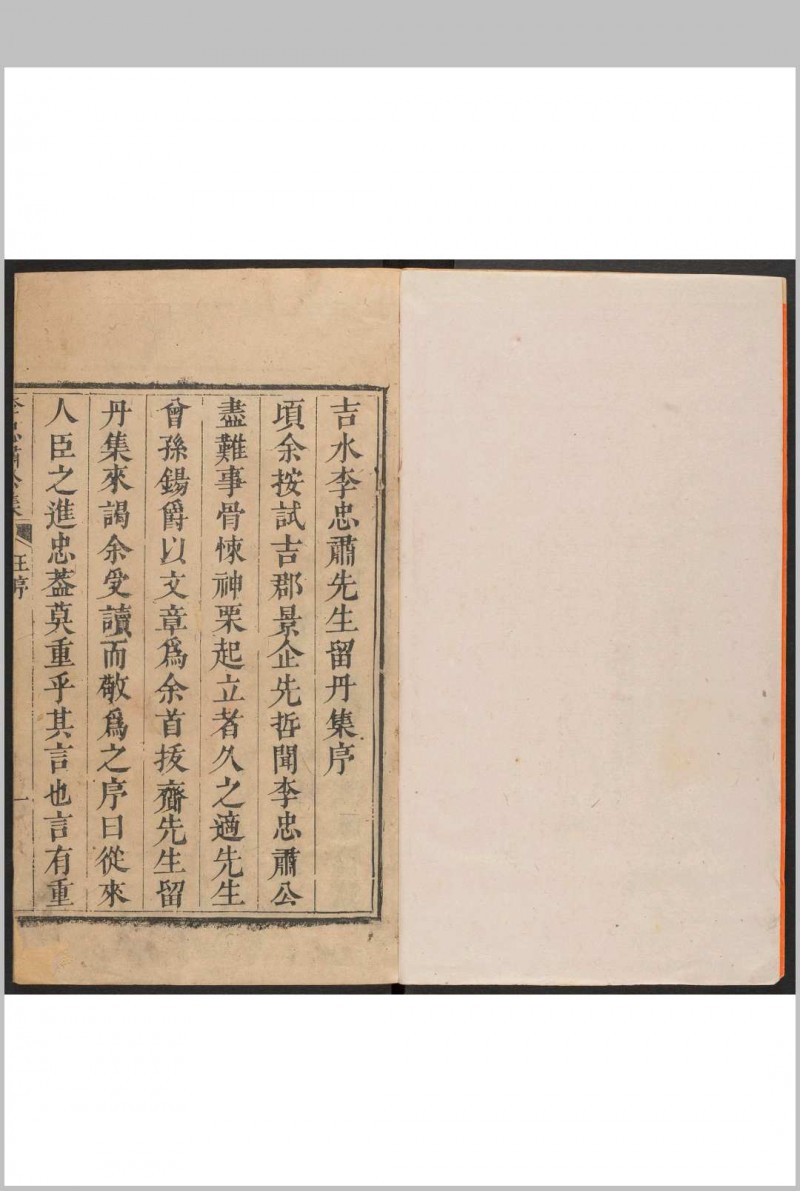 吉水李忠肅先生留丹集序
頃余按試吉郡景企先哲聞李忠肅公
盡難事骨悚神栗起立者久之適先生
曾孫鍚爵以文章爲余首拔齎先生留
丹集來謁余受讀而敬爲之序曰從來
人臣之進忠葢莫重乎其言也言有重
李忠肅公集 王序 一